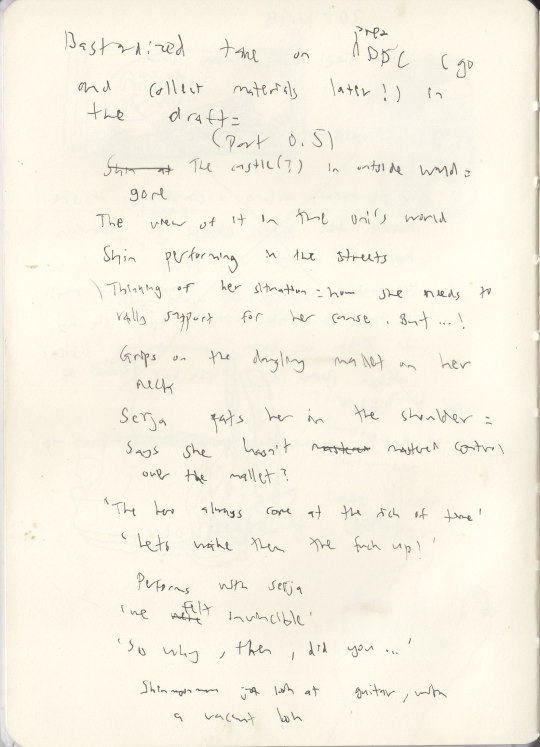 Bastardized take on prez DDC (go
and collect materials later!) in
the draft=
(Part 0.5)
Shin at The castle(?) in outside world=
gore
The view of it in the Oni's world
Shin performing in the streets
Thinking of her situation = how she needs to
rally support for her cause. But ...!
Grips on the dangling mallet on her
neck
Serja pats her in the shoulder =
Says she hasn't mastered control
over the mallet?
'The hero always come at the nick of time'
'Lets wake them the fuck up!'
Performs with Serja
'we were felt invincible'
'So why, then, did you ...'
Shin look at guitar, with
a vacant look